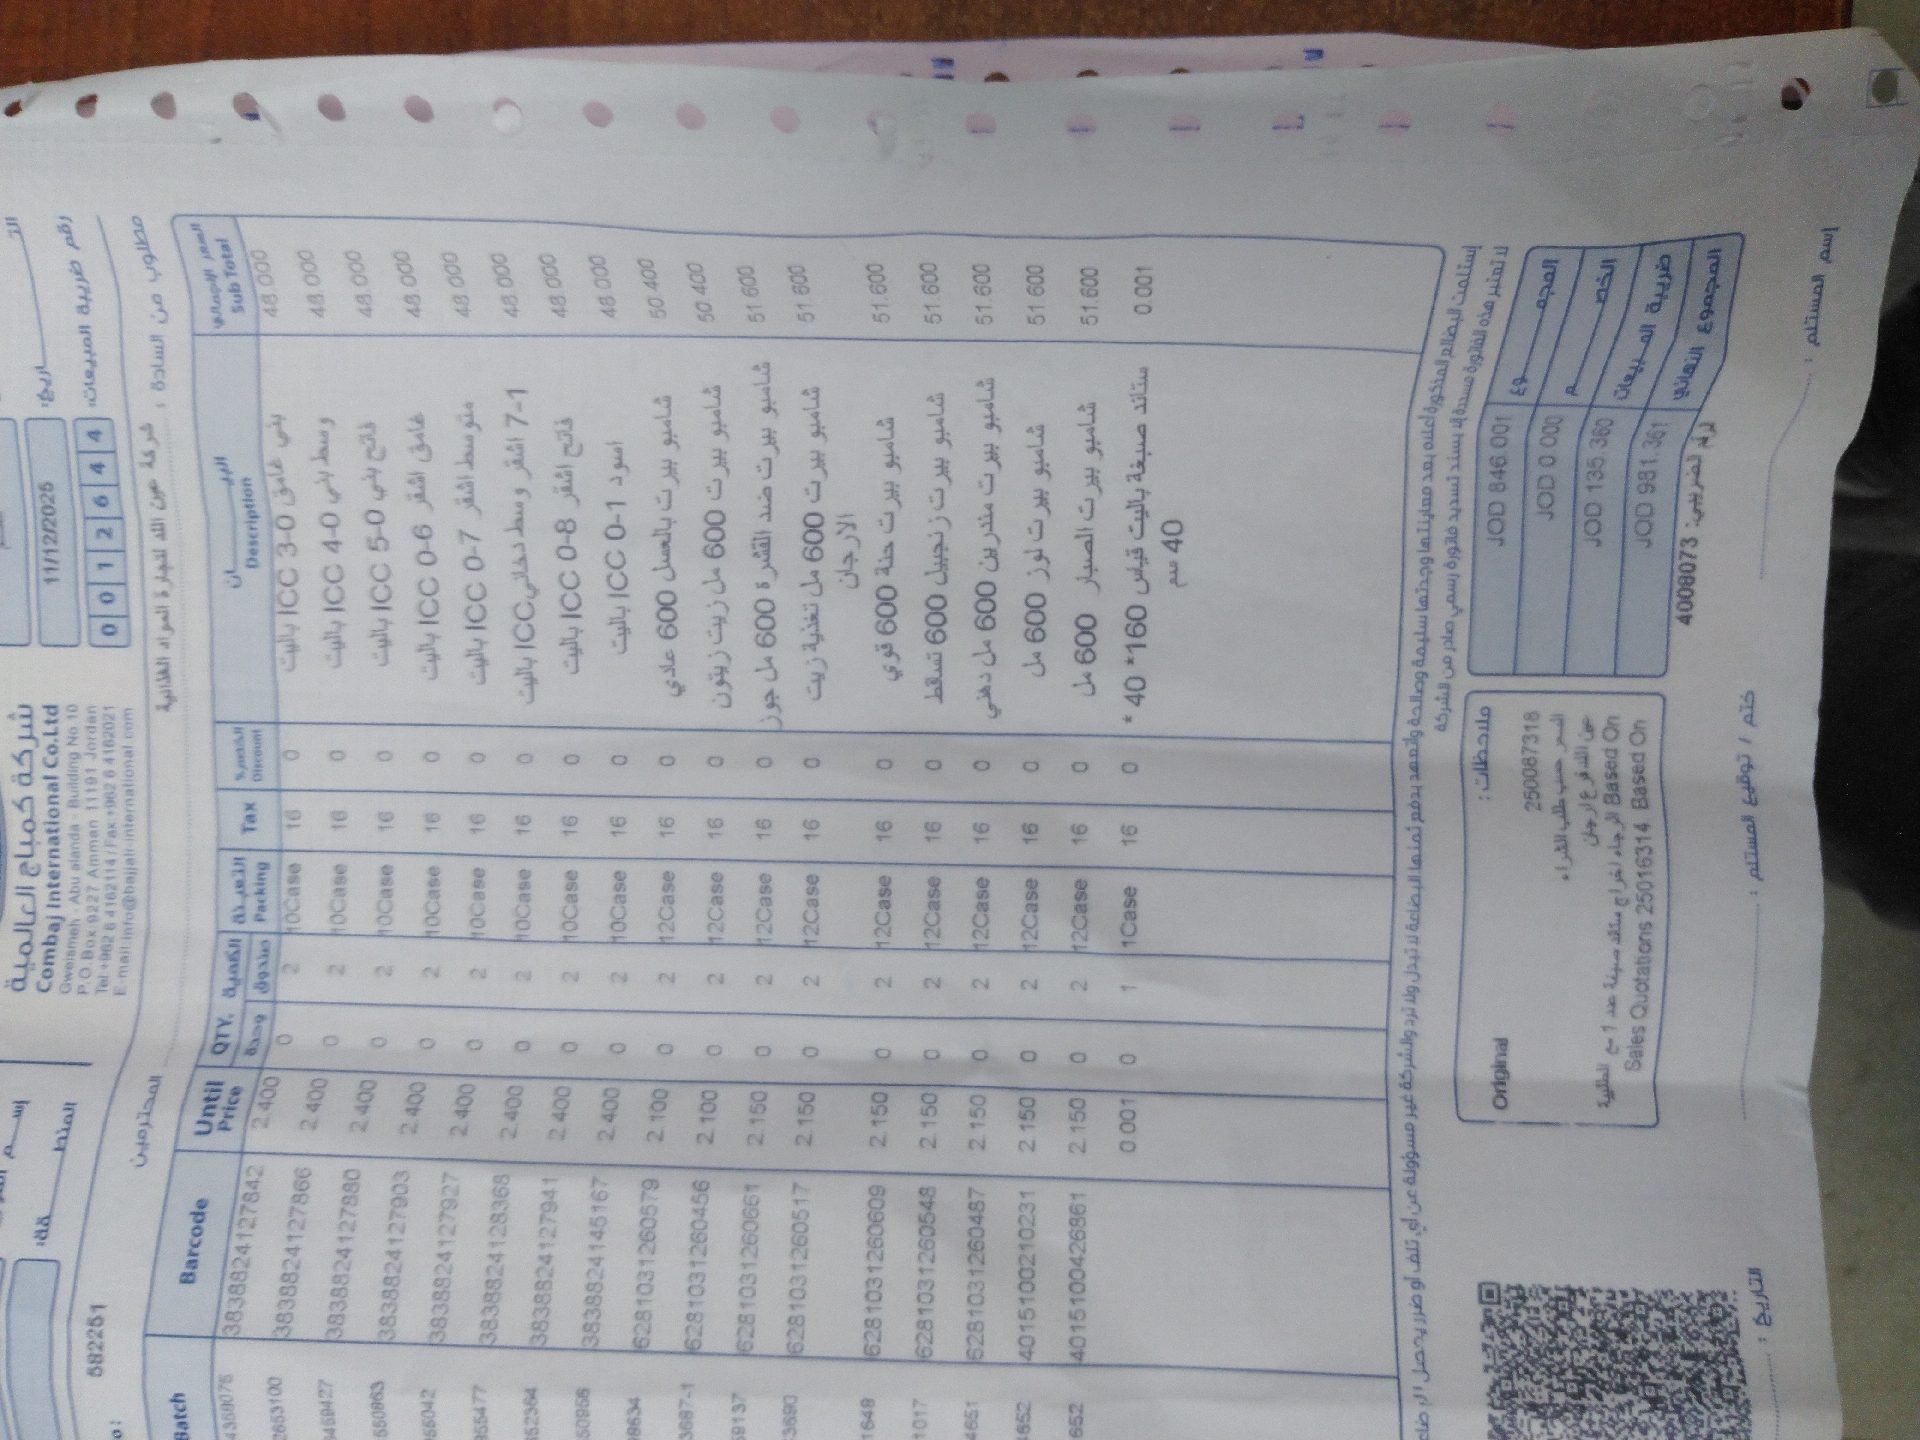 شركة كمباج العالمية
Combaj International Co.Ltd
Gwelameh - Abu alanda - Building No 10
P.O. Box 9227 Amman 11191 Jordan
Tel:+962 6 4162114 / Fax:+962 6 4162021
E-mail:info@bajjali-international.com
11/12/2025
رقم ضريبة المبيعات:
0 0 1 2 6 4 4
582251
مطلوب من السادة : شركة عين الله لتجارة المواد الغذائية المحترمين
Batch Barcode Until Price QTY. الكمية وحدة صندوق التعبئة Packing Tax الخصم% Discount البيــــــان Description السعر الاجمالي Sub Total
3838824127842 2.400 0 2 10Case 16 0 باليت ICC 3-0 بني غامق 48.000
3838824127866 2.400 0 2 10Case 16 0 باليت ICC 4-0 وسط بني 48.000
3838824127880 2.400 0 2 10Case 16 0 باليت ICC 5-0 فاتح بني 48.000
3838824127903 2.400 0 2 10Case 16 0 باليت ICC 0-6 غامق اشقر 48.000
3838824127927 2.400 0 2 10Case 16 0 باليت ICC 0-7 متوسط اشقر 48.000
3838824128368 2.400 0 2 10Case 16 0 باليت ICC 7-1 اشقر وسط دخاني 48.000
3838824127941 2.400 0 2 10Case 16 0 باليت ICC 0-8 فاتح اشقر 48.000
3838824145167 2.400 0 2 10Case 16 0 باليت ICC 0-1 اسود 48.000
6281031260579 2.100 0 2 12Case 16 0 شامبو بيرت بالعسل 600 عادي 50.400
6281031260456 2.100 0 2 12Case 16 0 شامبو بيرت 600 مل زيت زيتون 50.400
6281031260661 2.150 0 2 12Case 16 0 شامبو بيرت ضد القشرة 600 مل جوز 51.600
6281031260517 2.150 0 2 12Case 16 0 شامبو بيرت 600 مل تغذية زيت 51.600
الارجان
6281031260609 2.150 0 2 12Case 16 0 شامبو بيرت حنة 600 قوي 51.600
6281031260548 2.150 0 2 12Case 16 0 شامبو بيرت زنجبيل 600 تساقط 51.600
6281031260487 2.150 0 2 12Case 16 0 شامبو بيرت مندرين 600 مل دهني 51.600
4015100210231 2.150 0 2 12Case 16 0 شامبو بيرت لوز 600 مل 51.600
4015100426861 2.150 0 2 12Case 16 0 شامبو بيرت الصبار 600 مل 51.600
0.001 0 1 1Case 16 0 ستاند صبغة باليت قياس 160* 40 * 0.001
40 سم
لا تعتبر هذه الفاتورة مسددة الا بسند تسديد فاتورة رسمي صادر من الشركة
Original
ملاحظات :
250087318
السعر حسب طلب الشراء
عين الله فرع ارجان
Based On الرجاء اخراج ستاند صبغة عدد 1 مع الطلبية
Sales Quotations 25016314 Based On
المجمــــــوع JOD 846.001
الخصــــــم JOD 0.000
ضريبة المــبيعات JOD 135.360
المجموع النهائي JOD 981.361
40080073
إسم المستلم :
ختم / توقيع المستلم :
التاريخ :